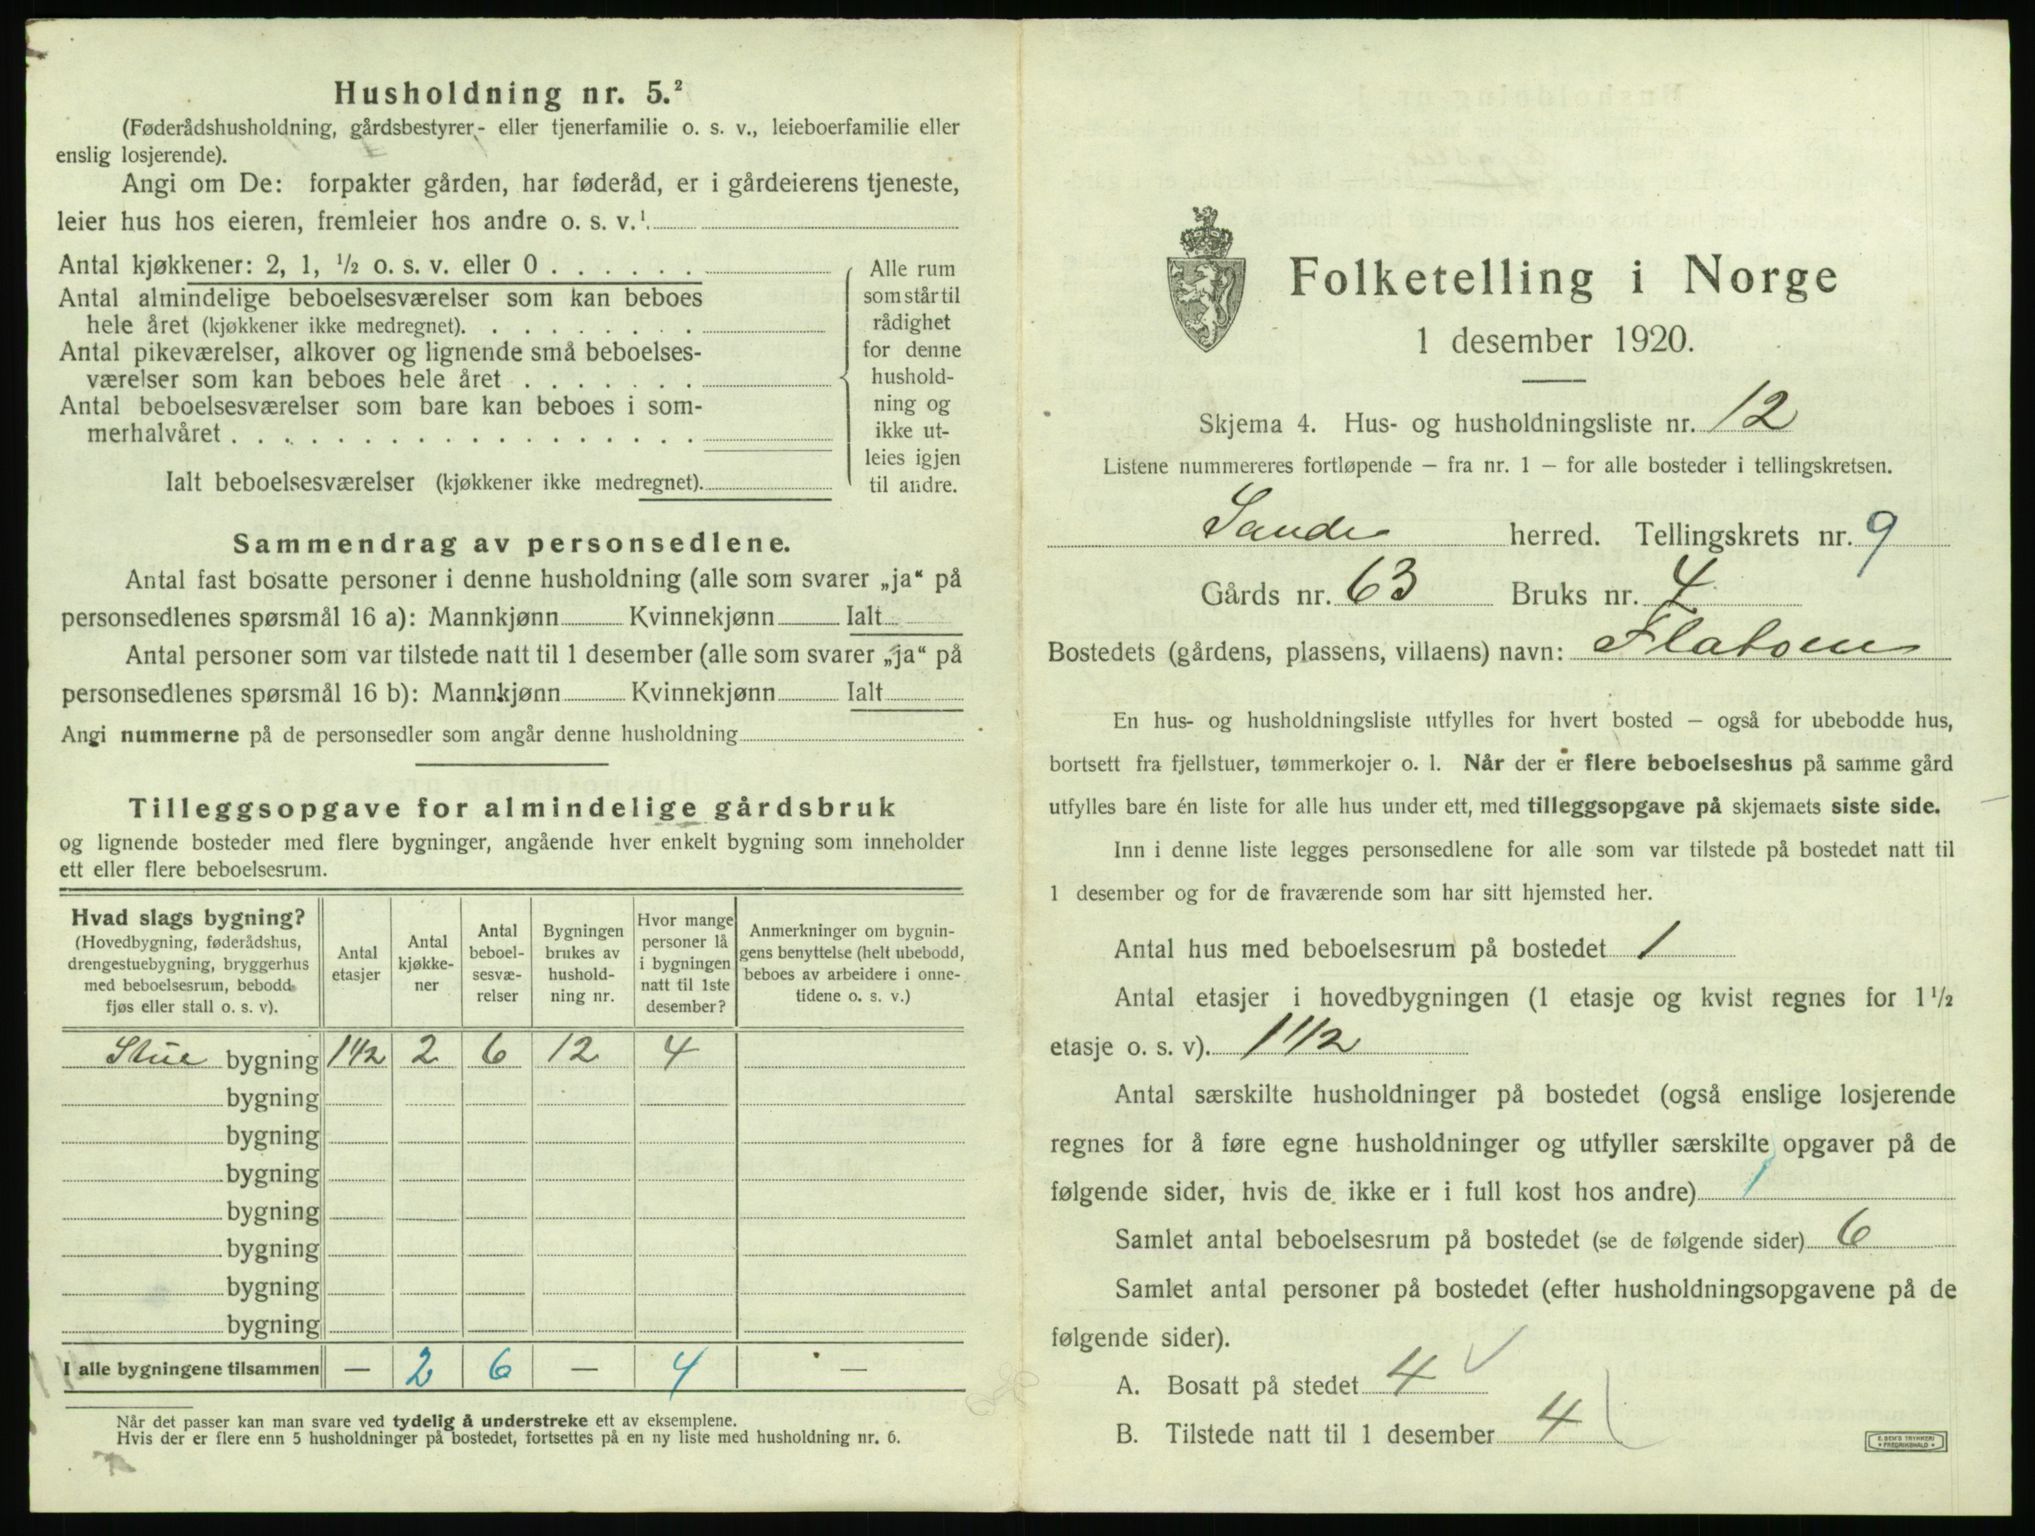 Husholdning nr. 5.²
(Føderådshusholdning, gårdsbestyrer- eller tjenerfamilie o. s. v., leieboerfamilie eller
enslig losjerende).
Angi om De: forpakter gården, har føderåd, er i gårdeierens tjeneste,
leier hus hos eieren, fremleier hos andre o. s. v.¹
Antal kjøkkener: 2, 1, ½ o. s. v. eller 0 . . . . . .
Antal almindelige beboelsesværelser som kan beboes
hele året (kjøkkener ikke medregnet). . . . . . . . .
Antal pikeværelser, alkover og lignende små beboelses-
værelser som kan beboes hele året . . . . . . .
Antal beboelsesværelser som bare kan beboes i som-
merhalvåret . . . . . . . . . . . . . . . . . .
Ialt beboelsesværelser (kjøkkener ikke medregnet).
Alle rum
som står til
rådighet
for denne
hushold-
ning og
ikke ut-
leies igjen
til andre.
Sammendrag av personsedlene.
Antal fast bosatte personer i denne husholdning (alle som svarer „ja“ på
personsedlenes spørsmål 16 a): Mannkjønn Kvinnekjønn Ialt
Antal personer som var tilstede natt til 1 desember (alle som svarer „ja“ på
personsedlenes spørsmål 16 b): Mannkjønn Kvinnekjønn Ialt
Angi nummerne på de personsedler som angår denne husholdning
Tilleggsopgave for almindelige gårdsbruk
og lignende bosteder med flere bygninger, angående hver enkelt bygning som inneholder
ett eller flere beboelsesrum.
Hvad slags bygning?
(Hovedbygning, føderådshus,
drengestuebygning, bryggerhus
med beboelsesrum, bebodd
fjøs eller stall o. s. v).
Antal
etasjer
Antal
kjøkke-
ner
Antal
beboel-
sesvæ-
relser
Bygningen
brukes av
hushold-
ning nr.
Hvor mange
personer lå
i bygningen
natt til 1ste
desember?
Anmerkninger om bygnin-
gens benyttelse (helt ubebodd,
beboes av arbeidere i onne-
tidene o. s. v.)
Stue bygning 1 1/2 2 6 12 4
bygning
bygning
bygning
bygning
bygning
bygning
bygning
I alle bygningene tilsammen — 2 6 — 4 —
Når det passer kan man svare ved tydelig å understreke ett av eksemplene.
Hvis der er flere enn 5 husholdninger på bostedet, fortsettes på en ny liste med husholdning nr. 6.
Folketelling i Norge
1 desember 1920.
Skjema 4. Hus- og husholdningsliste nr. 12
Listene nummereres fortløpende — fra nr. 1 — for alle bosteder i tellingskretsen.
Sande herred. Tellingskrets nr. 9
Gårds nr. 63 Bruks nr. 4
Bostedets (gårdens, plassens, villaens) navn:
En hus- og husholdningsliste utfylles for hvert bosted — også for ubebodde hus,
bortsett fra fjellstuer, tømmerkojer o. l. Når der er flere beboelseshus på samme gård
utfylles bare én liste for alle hus under ett, med tilleggsopgave på skjemaets siste side.
Inn i denne liste legges personsedlene for alle som var tilstede på bostedet natt til
1 desember og for de fraværende som har sitt hjemsted her.
Antal hus med beboelsesrum på bostedet 1
Antal etasjer i hovedbygningen (1 etasje og kvist regnes for 1½
etasje o. s. v). 1 1/2
Antal særskilte husholdninger på bostedet (også enslige losjerende
regnes for å føre egne husholdninger og utfyller særskilte opgaver på de
følgende sider, hvis de ikke er i full kost hos andre) 1
Samlet antal beboelsesrum på bostedet (se de følgende sider) 6
Samlet antal personer på bostedet (efter husholdningsopgavene på de
følgende sider).
A. Bosatt på stedet 4
B. Tilstede natt til 1 desember 4
E. SEM'S TRYKKERI
• FREDRIKSHALD •